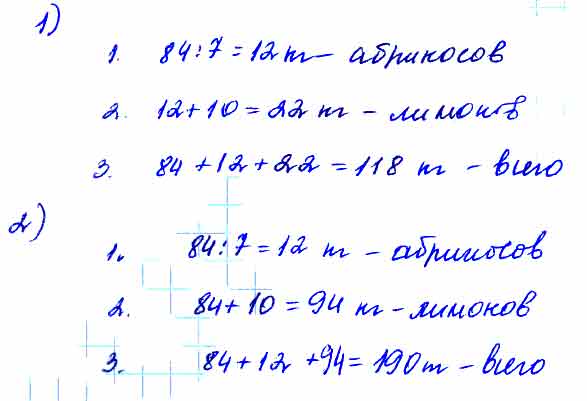 1)
1. 84:7=12 кг – абрикосов
2. 12+10=22 кг – лимонов
3. 84+12+22=118 кг – всего
2)
1. 84:7=12 кг – абрикосов
2. 84+10=94 кг – лимонов
3. 84+12+94=190 т – всего